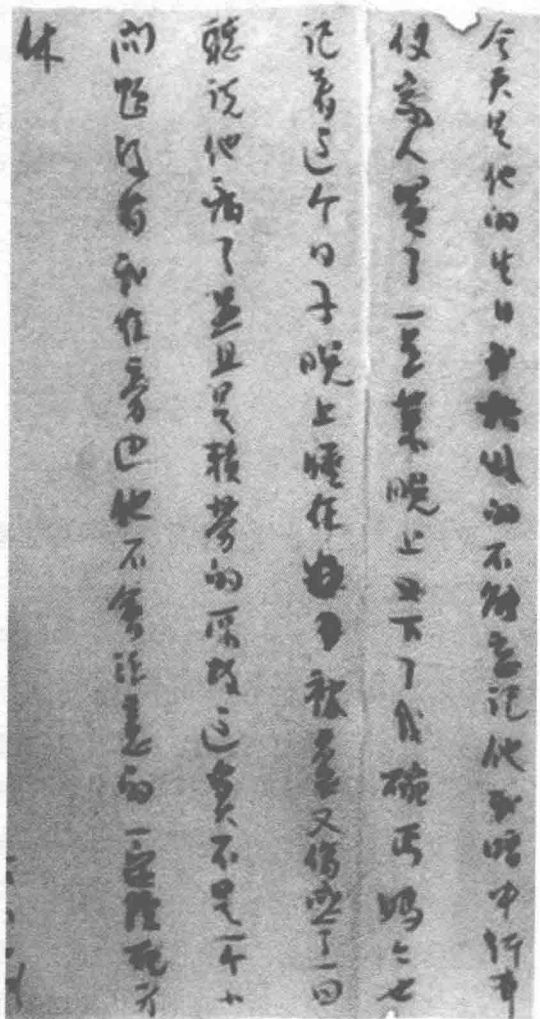 今天是他的生日我格外的不能忘记他我暗中行事
使家人買了一点菜晚上又下了几碗面妈妈也
记着这个日子晚上睡在被裏又傷感了一回
聽说他病了並且是積劳的原故这真不是一个小
问题没有我在旁边他不會注意的一定累死方
休